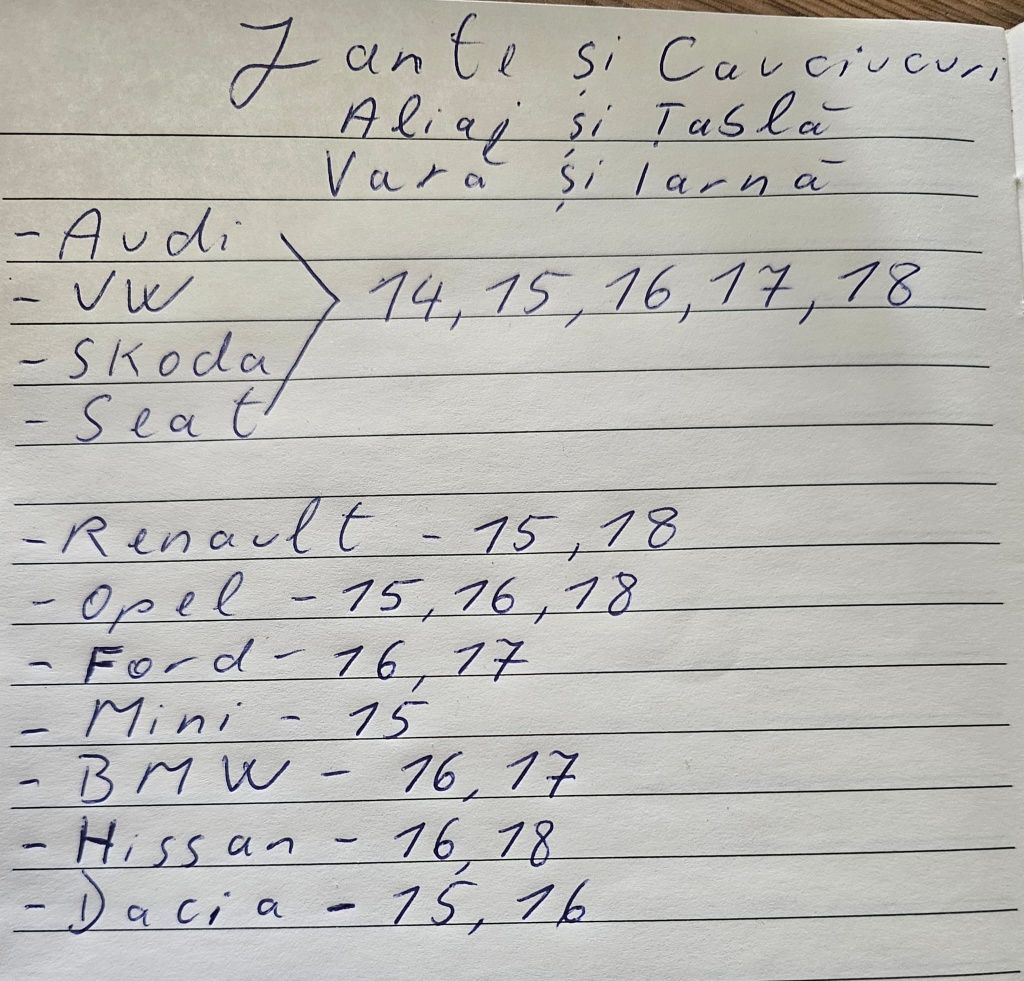 Jante și Cauciucuri
Aliaj și Tablă
Vară și Iarnă
- Audi
- VW
- Skoda
- Seat
14, 15, 16, 17, 18
- Renault - 15, 18
- Opel - 15, 16, 18
- Ford - 16, 17
- Mini - 15
- BMW - 16, 17
- Hissan - 16, 18
- Dacia - 15, 16